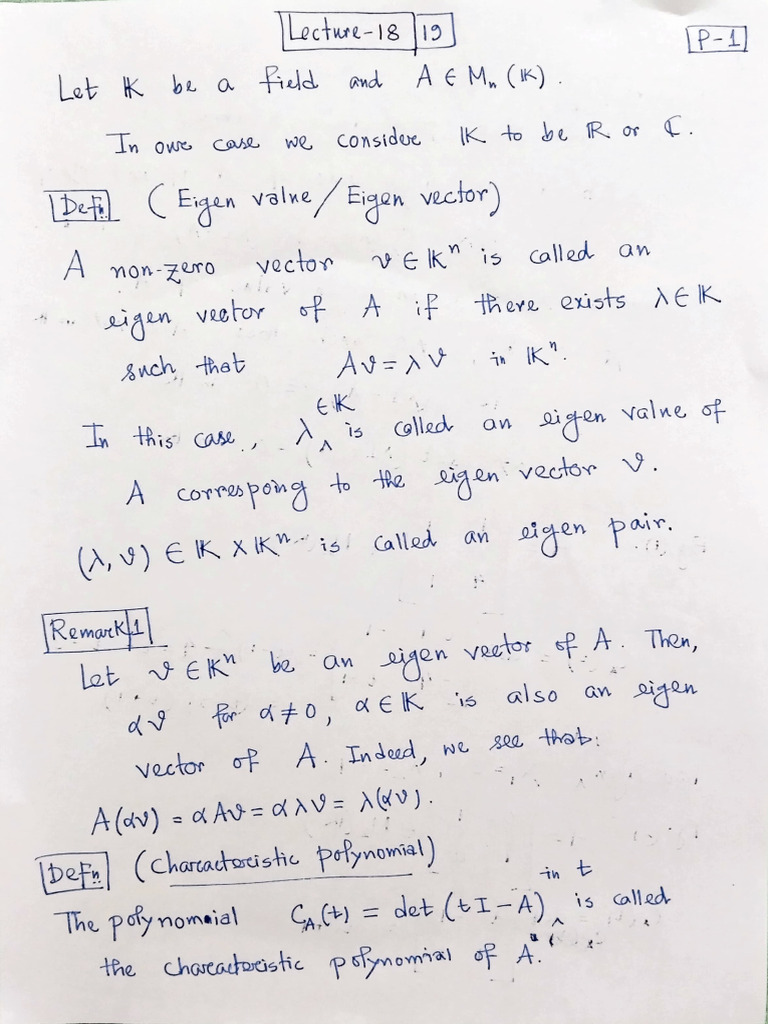 Lecture-18 19
P-1
Let 𝕂 be a field and A ∈ Mₙ(𝕂).
In our case we consider 𝕂 to be ℝ or ℂ.
Defn (Eigen value/Eigen vector)
A non-zero vector v ∈ 𝕂ⁿ is called an
eigen vector of A if there exists λ ∈ 𝕂
such that Av = λv in 𝕂ⁿ.
In this case, λ ∈ 𝕂 is called an eigen value of
A correspoing to the eigen vector v.
(λ, v) ∈ 𝕂 X 𝕂ⁿ is called an eigen pair.
Remark 1
Let v ∈ 𝕂ⁿ be an eigen vector of A. Then,
αv for α ≠ 0, α ∈ 𝕂 is also an eigen
vector of A. Indeed, we see that:
A(αv) = αAv = αλv = λ(αv).
Defn (Characteristic polynomial)
The polynomial C_A(t) = det(tI-A) in t is called
the characteristic polynomial of A.